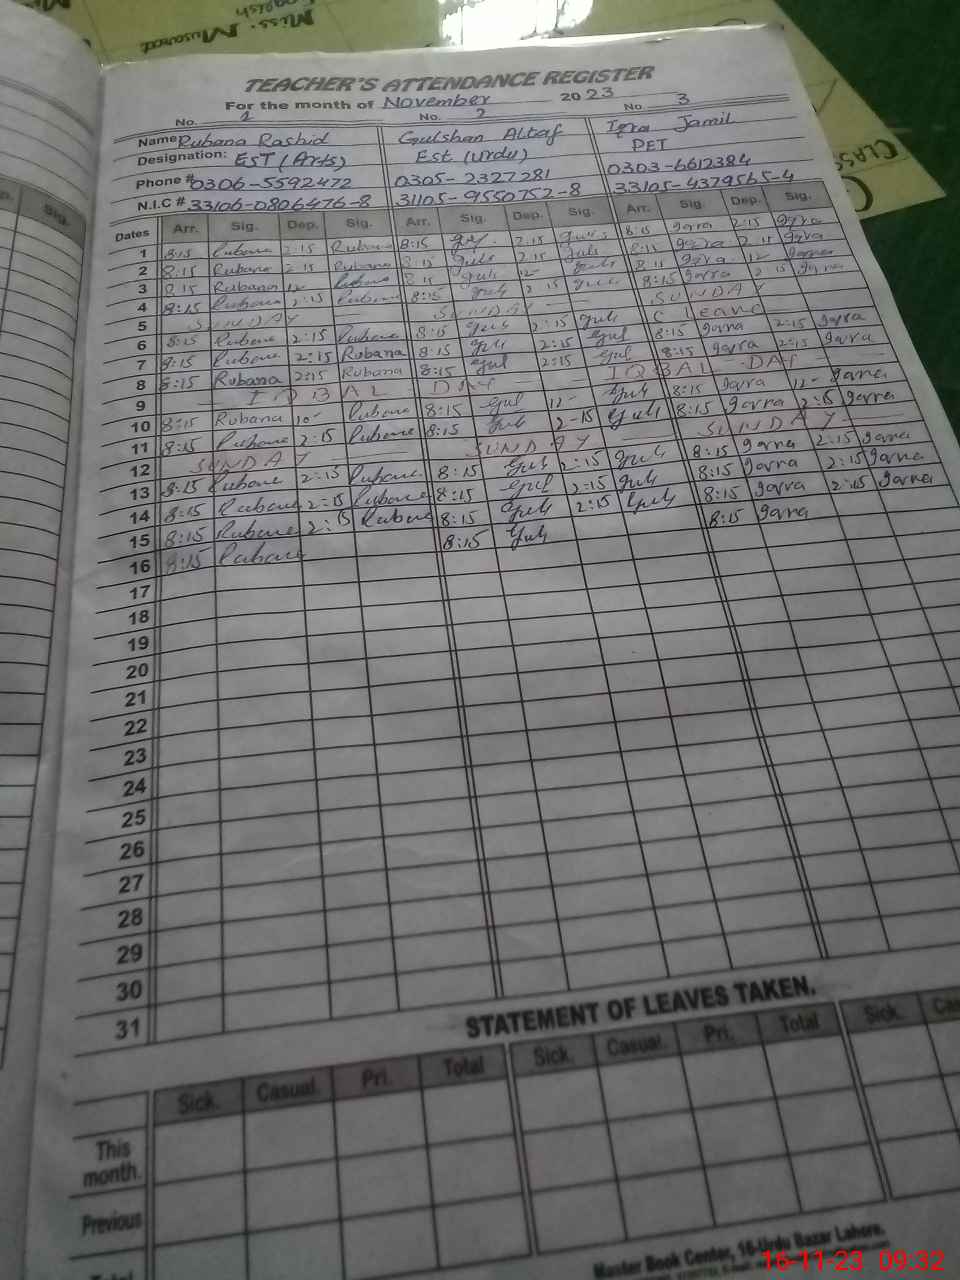 Miss. Musarat
English
CLASS
TEACHER'S ATTENDANCE REGISTER
For the month of November 2023
No. 1 No. 2 No. 3
Name Rubana Rashid Gulshan Altaf Iqra Jamil
Designation: EST (Arts) Est (urdu) PET
Phone # 0306-5592472 0305-2327281 0303-6612384
N.I.C # 33106-0806476-8 31105-9550752-8 33105-4379565-4
Dates Arr. Sig. Dep. Sig. Arr. Sig. Dep. Sig. Arr. Sig. Dep. Sig.
1 8:15 Rubana 2:15 Rubana 8:15 2:15 8:15 Iqra 2:15 Iqra
2 8:15 Rubana 2:15 Rubana 8:15 Gul 2:15 Gul 8:15 Iqra 2:15 Iqra
3 8:15 Rubana 12 Rubana 8:15 Gul 12- Gul 8:15 Iqra 12 Iqra
4 8:15 Rubana 2:15 Rubana 8:15 Gul 2:15 Gul 8:15 Iqra 2:15 Iqra
5 SUNDAY SUNDAY SUNDAY
6 8:15 Rubana 2:15 Rubana 8:15 Gul 2:15 Gul C Leave
7 8:15 Rubana 2:15 Rubana 8:15 Gul 2:15 Gul 8:15 Iqra 2:15 Iqra
8 8:15 Rubana 2:15 Rubana 8:15 Gul 2:15 Gul 8:15 Iqra 2:15 Iqra
9 IQBAL DAY IQBAL DAY
10 8:15 Rubana 10- Rubana 8:15 Gul 12- Gul 8:15 Iqra 12- Iqra
11 8:15 Rubana 2:15 Rubana 8:15 Gul 2-15 Gul 8:15 Iqra 2:15 Iqra
12 SUNDAY SUNDAY SUNDAY
13 8:15 Rubana 2:15 Rubana 8:15 Gul 2:15 Gul 8:15 Iqra 2:15 Iqra
14 8:15 Rubana 2:15 Rubana 8:15 Gul 2:15 Gul 8:15 Iqra 2:15 Iqra
15 8:15 Rubana 2:15 Rubana 8:15 Gul 2:15 Gul 8:15 Iqra 2:15 Iqra
16 8:15 Rubana 8:15 Gul 8:15 Iqra
17
18
19
20
21
22
23
24
25
26
27
28
29
30
31
STATEMENT OF LEAVES TAKEN.
Sick. Casual. Pri. Total Sick. Casual. Pri. Total Sick.
This
month.
Previous
Total
Master Book Center, 16-Urdu Bazar Lahore.
16-11-23 09:32